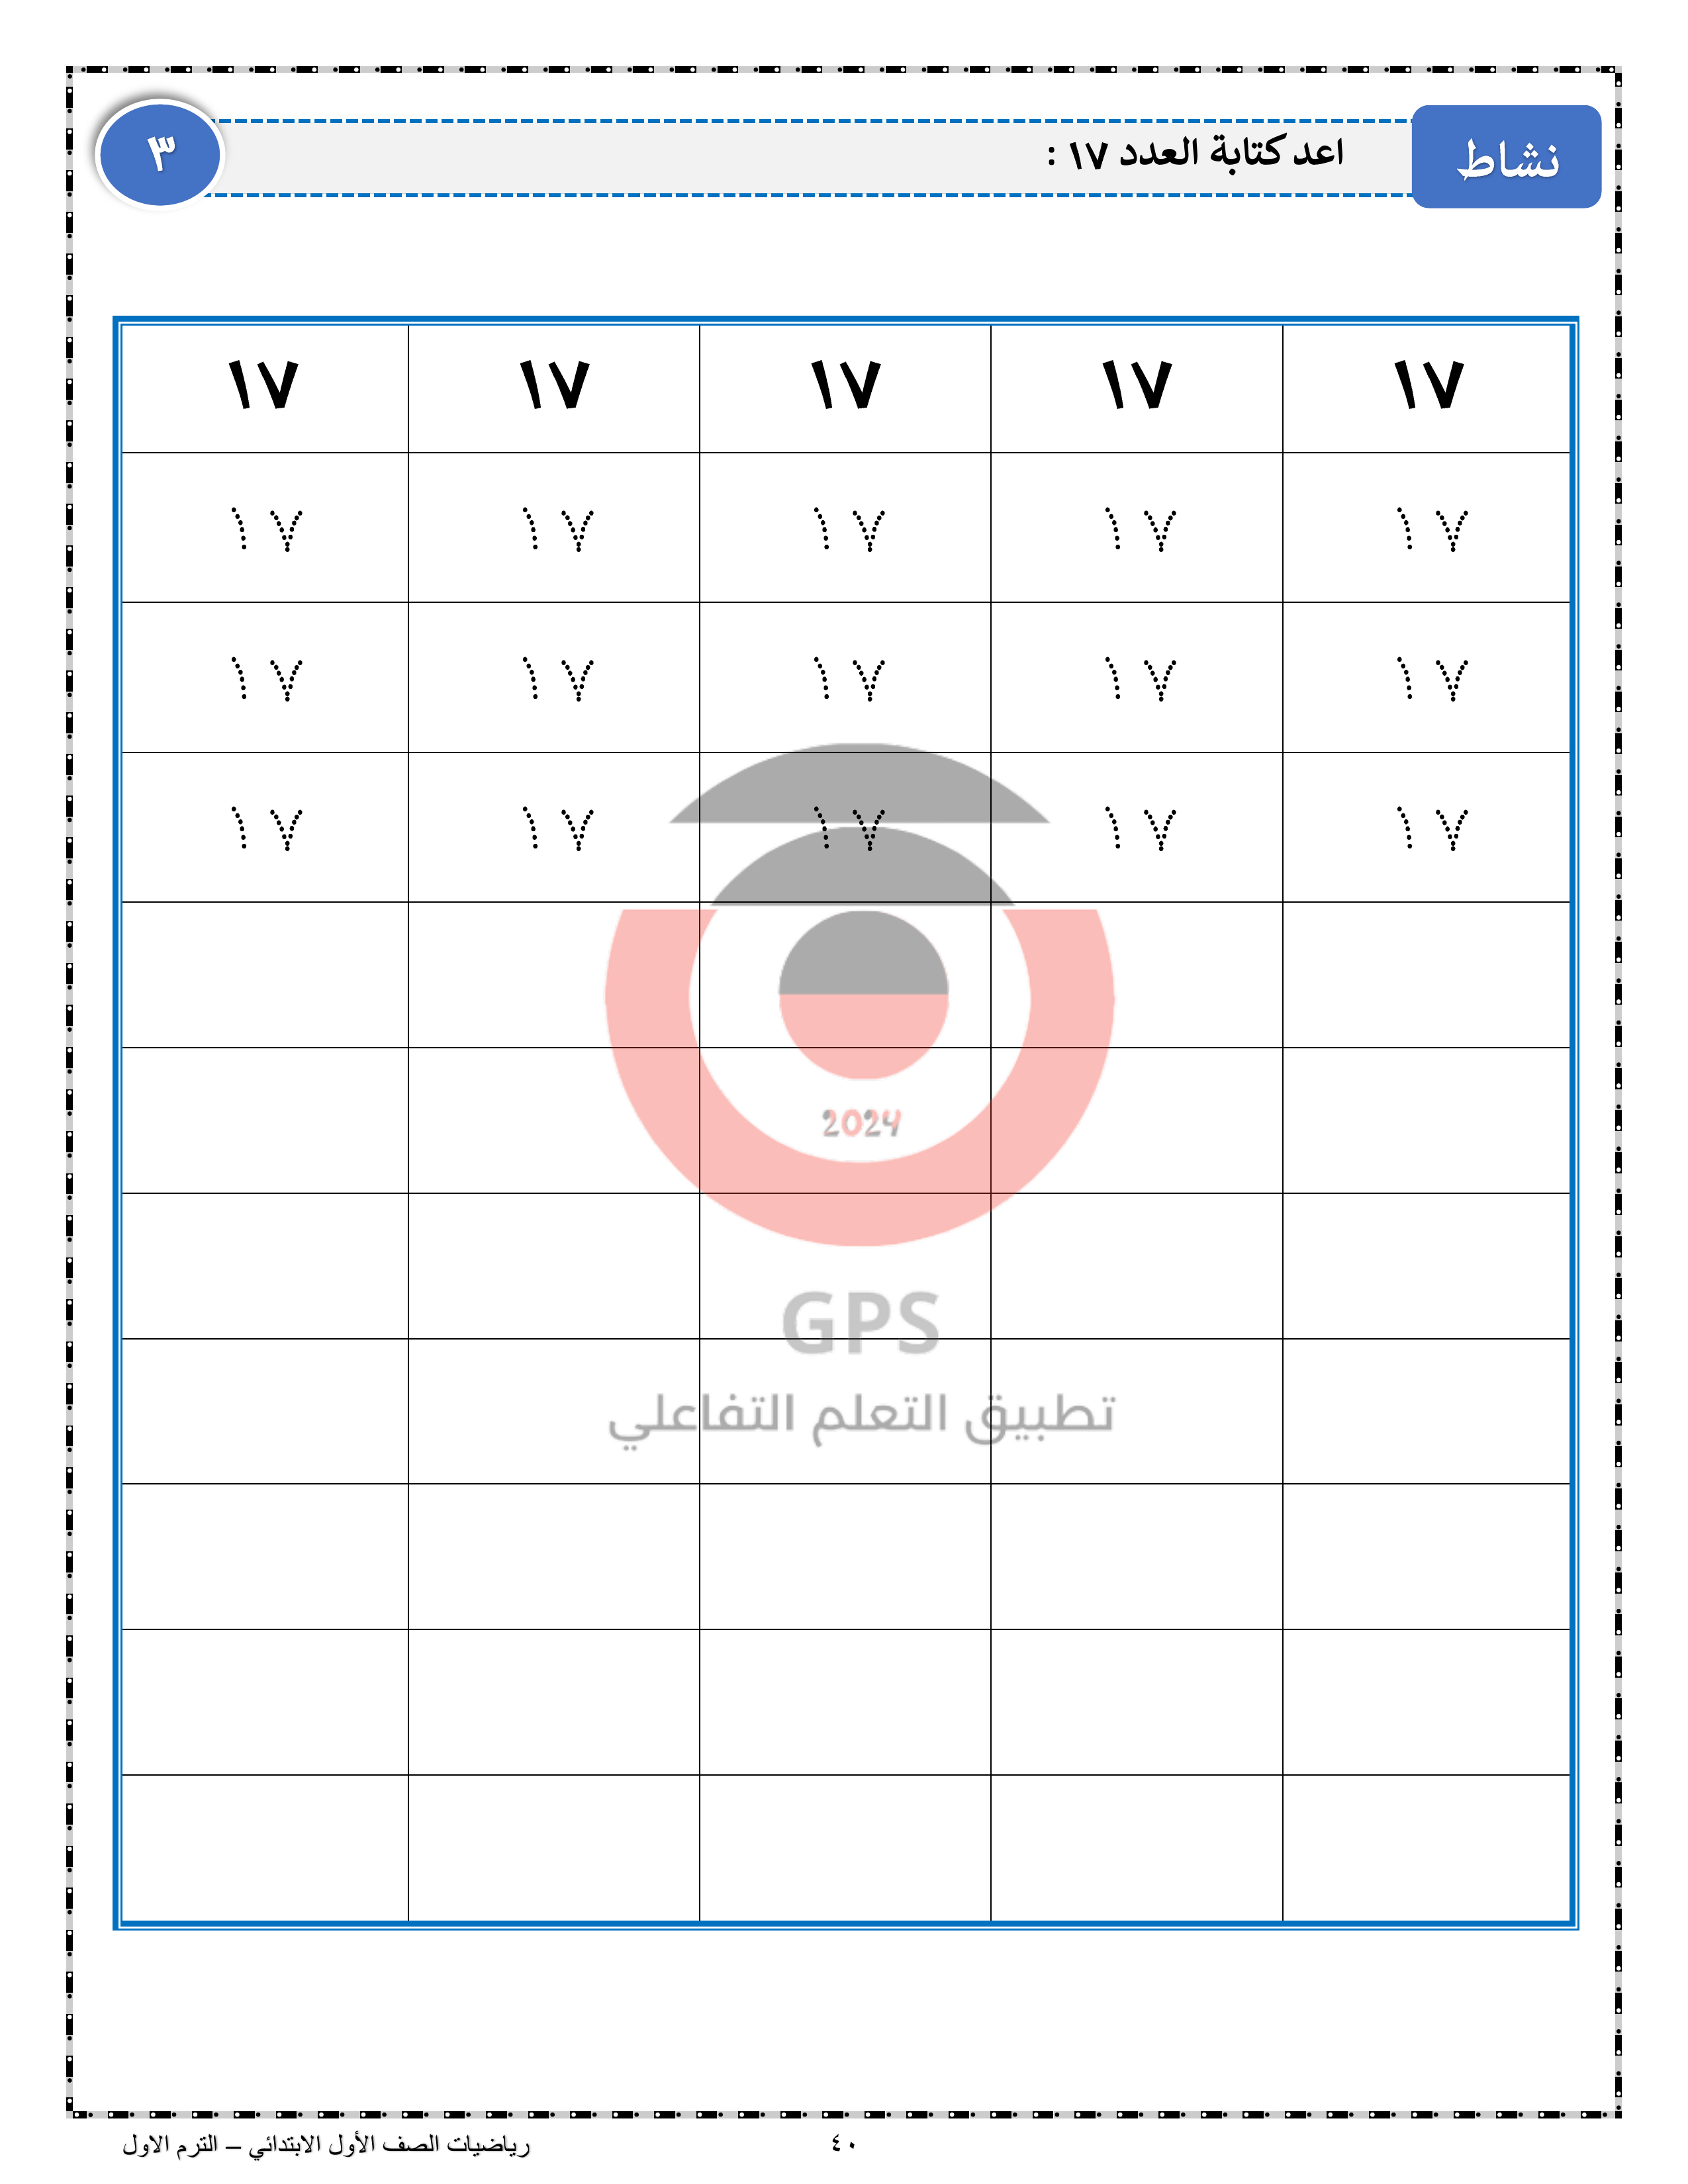 نشاط
اعد كتابة العدد ١٧ :
٣
١٧ ١٧ ١٧ ١٧ ١٧
١٧ ١٧ ١٧ ١٧ ١٧
١٧ ١٧ ١٧ ١٧ ١٧
١٧ ١٧ ١٧ ١٧ ١٧
2024
GPS
تطبيق التعلم التفاعلي
٤٠
رياضيات الصف الأول الابتدائي – الترم الاول